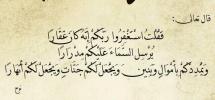 قال تعالى:
فَقُلْتُ اسْتَغْفِرُوا رَبَّكُمْ إِنَّهُ كَانَ غَفَّارًا
يُرْسِلِ السَّمَاءَ عَلَيْكُمْ مِدْرَارًا
وَيُمْدِدْكُمْ بِأَمْوَالٍ وَبَنِينَ وَيَجْعَلْ لَكُمْ جَنَّاتٍ وَيَجْعَلْ لَكُمْ أَنْهَارًا
نوح